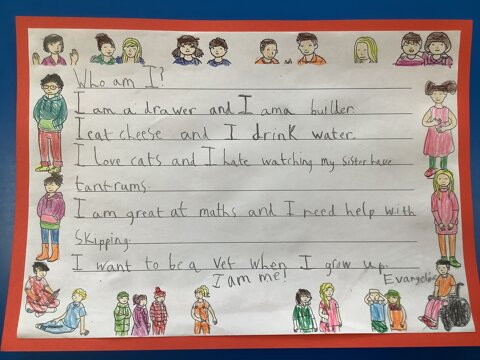 Who am I?
I am a drawer and I am a builder.
I eat cheese and I drink water.
I love cats and I hate watching my sister have
tantrums.
I am great at maths and I need help with
skipping.
I want to be a vet when I grow up.
I am me!